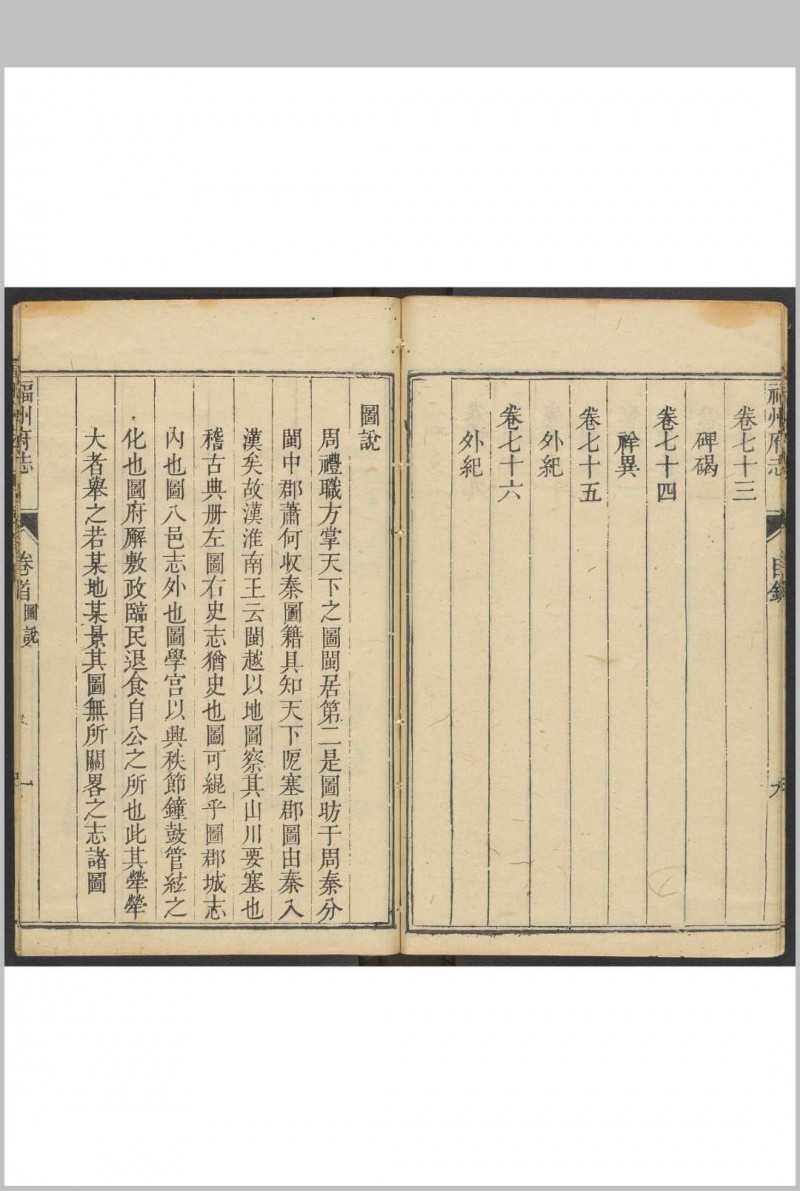 福州府志
目錄
九
卷七十三
碑碣
卷七十四
祥異
卷七十五
外紀
卷七十六
外紀
圖說
周禮職方掌天下之圖閩居第二是圖昉于周秦分
閩中郡蕭何收秦圖籍具知天下阨塞郡圖由秦入
漢矣故漢淮南王云閩越以地圖察其山川要塞也
稽古典册左圖右史志猶史也圖可緄乎圖郡城志
內也圖八邑志外也圖學宮以興秩節鐘鼓管絃之
化也圖府廨敷政臨民退食自公之所也此其犖犖
大者舉之若某地某景其圖無所關畧之志諸圖
福州府志
卷首
圖說
一